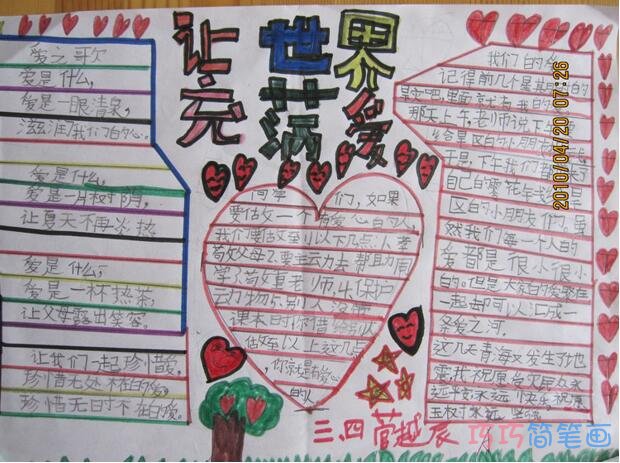 让世界
充满爱
爱之歌
爱是什么,
爱是一眼清泉,
滋润我们的心。
爱是什么,
爱是一片树阴,
让夏天不再炎热
爱是什么,
爱是一杯热茶,
让父母露出笑容。
让我们一起珍惜爱,
珍惜无处不在的爱,
珍惜无时不在的爱。
同学们,如果
要做一个有爱心的人,
我们要做到以下几点:1.孝
敬父母2.要主动去帮助同
学3.敬重老师,4.保护
动物5.别人没带
课本时你借给别人
做到以上这几点
,你就是有爱心
的人
我们的爱
记得前几个星期
那天上午老师说下午
区的小朋友
于是,下午我们
自己的零花钱
区的小朋友们。虽
然我们每一个人的
爱都是很小很小
的。但是大家的爱聚在
一起却可以汇成一
条爱之河。
这几天青海又发生了地
震,我祝愿
远平安永远快乐,祝愿
玉树永远坚强
三.四 菅越辰
2010/04/20 07:26
巧巧简笔画